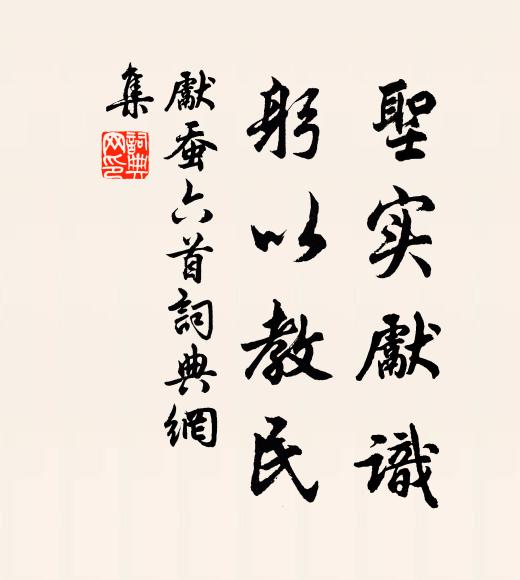 聖实獻識
躬以教民
獻蚕六首詞典網
集
詞典
网印